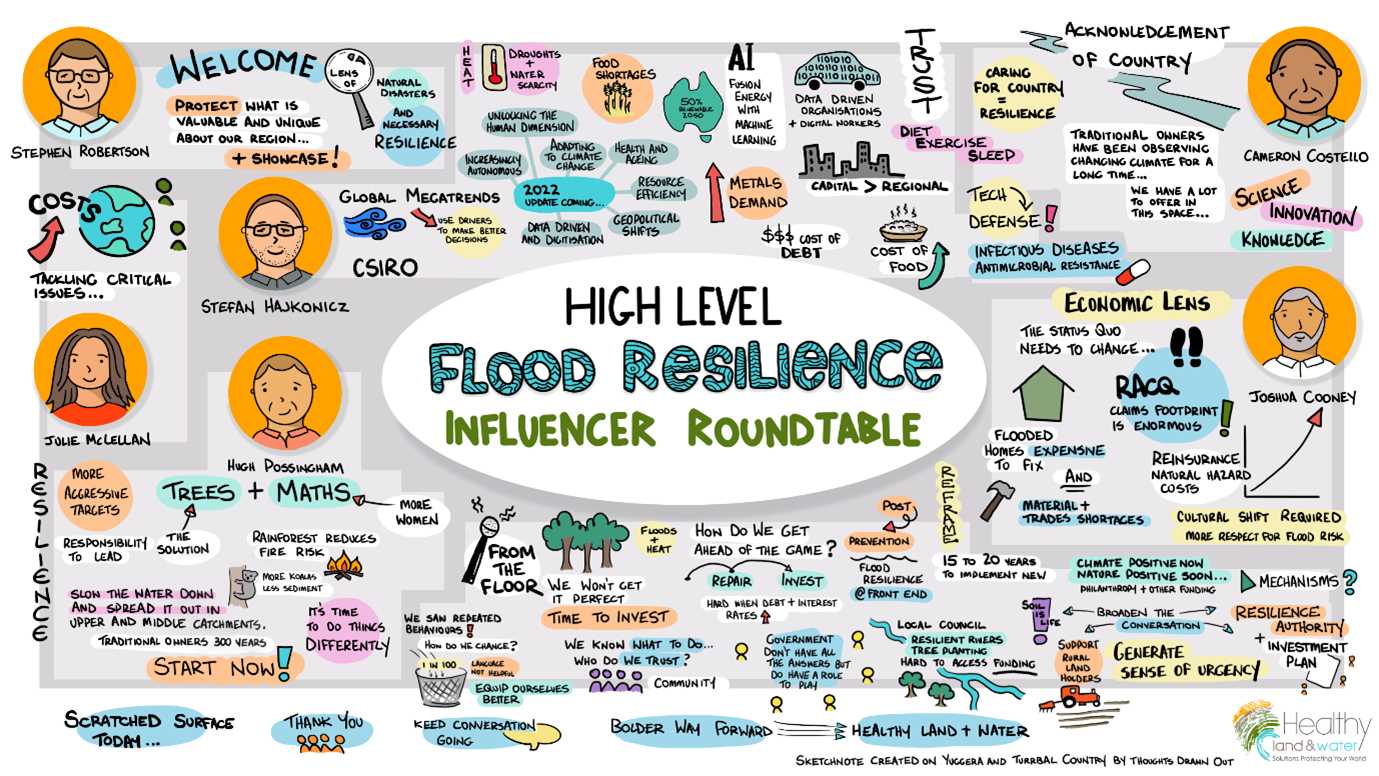 WELCOME
STEPHEN ROBERTSON
PROTECT WHAT IS
VALUABLE AND UNIQUE
ABOUT OUR REGION...
+ SHOWCASE!
LENS
OF
NATURAL
DISASTERS
AND
NECESSARY
RESILIENCE
HEAT
DROUGHTS
+
WATER
SCARCITY
FOOD
SHORTAGES
50%
RENEWABLE
2050
AI
FUSION
ENERGY
WITH
MACHINE
LEARNING
DATA DRIVEN
ORGANISATIONS
+ DIGITAL WORKERS
TRUST
DIET
EXERCISE
SLEEP
CARING
FOR COUNTRY
=
RESILIENCE
ACKNOWLEDGEMENT
OF COUNTRY
CAMERON COSTELLO
TRADITIONAL OWNERS
HAVE BEEN OBSERVING
CHANGING CLIMATE FOR A
LONG TIME...
WE HAVE A LOT
TO OFFER IN
THIS SPACE...
SCIENCE
INNOVATION
KNOWLEDGE
COSTS
TACKLING CRITICAL
ISSUES...
STEFAN HAJKONICZ
GLOBAL MEGATRENDS
USE DRIVERS
TO MAKE BETTER
DECISIONS
CSIRO
UNLOCKING THE
HUMAN DIMENSION
INCREASINGLY
AUTONOMOUS
ADAPTING
TO CLIMATE
CHANGE
HEALTH AND
AGEING
2022
UPDATE COMING...
RESOURCE
EFFICIENCY
DATA DRIVEN
AND DIGITISATION
GEOPOLITICAL
SHIFTS
METALS
DEMAND
CAPITAL > REGIONAL
$$$ COST OF
DEBT
COST OF
FOOD
TECH
DEFENSE!
INFECTIOUS DISEASES
ANTIMICROBIAL RESISTANCE
HIGH LEVEL
FLOOD RESILIENCE
INFLUENCER ROUNDTABLE
ECONOMIC LENS
THE STATUS QUO
NEEDS TO CHANGE...
!!
RACQ
CLAIMS FOOTPRINT
IS ENORMOUS!
JOSHUA COONEY
FLOODED
HOMES EXPENSIVE
TO FIX
AND
MATERIAL +
TRADES SHORTAGES
REINSURANCE
NATURAL HAZARD
COSTS
CULTURAL SHIFT REQUIRED
MORE RESPECT FOR FLOOD RISK
JULIE McLELLAN
HUGH POSSINGHAM
RESILIENCE
MORE
AGGRESSIVE
TARGETS
TREES + MATHS
MORE
WOMEN
RESPONSIBILITY
TO LEAD
THE
SOLUTION
RAINFOREST REDUCES
FIRE RISK
MORE KOALAS
LESS SEDIMENT
SLOW THE WATER DOWN
AND SPREAD IT OUT IN
UPPER AND MIDDLE CATCHMENTS.
TRADITIONAL OWNERS 300 YEARS
START NOW!
IT'S TIME
TO DO THINGS
DIFFERENTLY
FROM
THE
FLOOR
WE SAN REPEATED
BEHAVIOURS!
HOW DO WE CHANGE?
1 IN 100
LANGUAGE
NOT HELPFUL
EQUIP OURSELVES
BETTER
FLOODS
+
HEAT
WE WON'T GET
IT PERFECT
TIME TO INVEST
WE KNOW WHAT TO DO...
WHO DO WE TRUST?
COMMUNITY
HOW DO WE GET
AHEAD OF THE GAME?
REPAIR
INVEST
HARD WHEN DEBT + INTEREST
RATES
POST
PREVENTION
FLOOD
RESILIENCE
@ FRONT END
GOVERNMENT
DON'T HAVE ALL
THE ANSWERS BUT
DO HAVE A ROLE
TO PLAY
REFRAME!
15 TO 20 YEARS
TO IMPLEMENT NEW
LOCAL COUNCIL
RESILIENT RIVERS
TREE PLANTING
HARD TO ACCESS FUNDING
SOIL
IS
LIFE
SUPPORT
RURAL
LAND
HOLDERS
CLIMATE POSITIVE NOW
NATURE POSITIVE SOON...
PHILANTHROPY + OTHER FUNDING
BROADEN THE
CONVERSATION
GENERATE
SENSE OF URGENCY
MECHANISMS?
RESILIENCE
AUTHORITY
+
INVESTMENT
PLAN
SCRATCHED SURFACE
TODAY...
THANK YOU
KEEP CONVERSATION
GOING
BOLDER WAY FORWARD
HEALTHY LAND + WATER
SKETCHNOTE CREATED ON YUGGERA AND TURRBAL COUNTRY BY THOUGHTS DRAWN OUT
Healthy
land & water
Solutions Protecting Your World